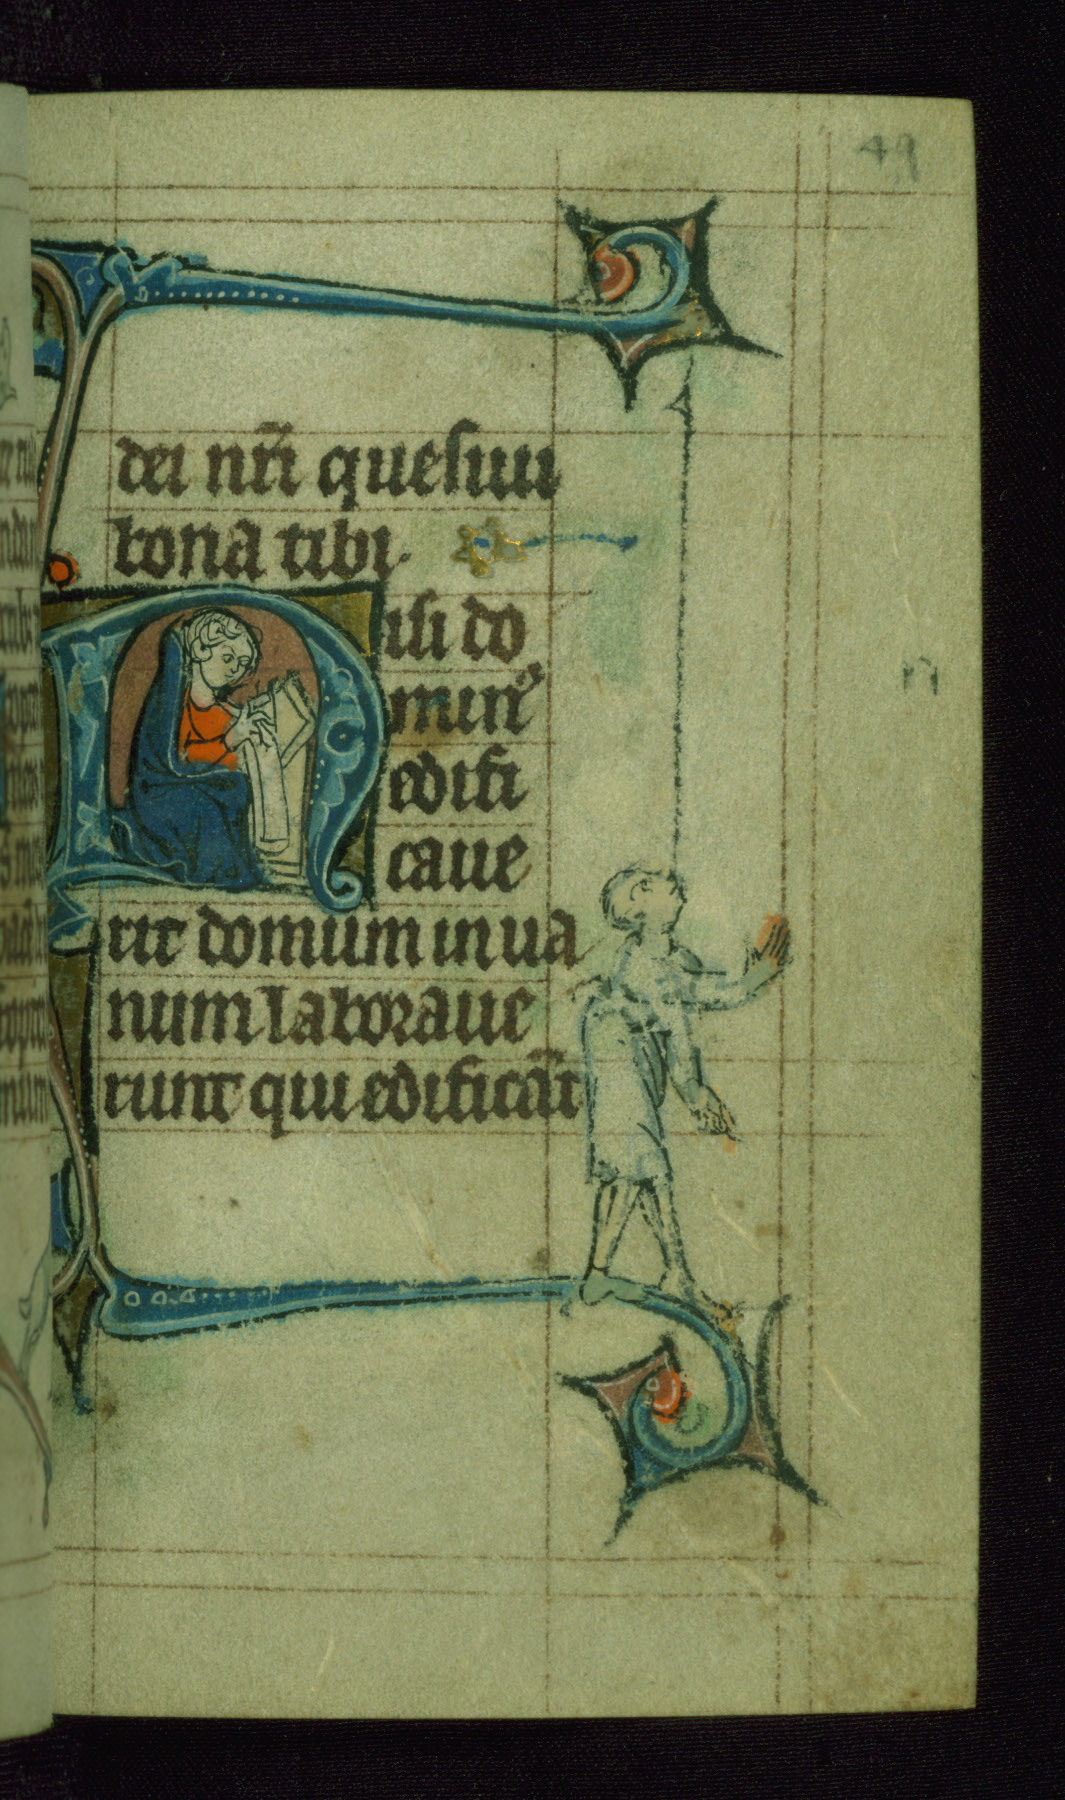 49
dei nr̄i quesiui
bona tibi.
Nisi do
minꝰ
edifi
caue
rit domum in ua
num laboraue
runt qui edificāt
n